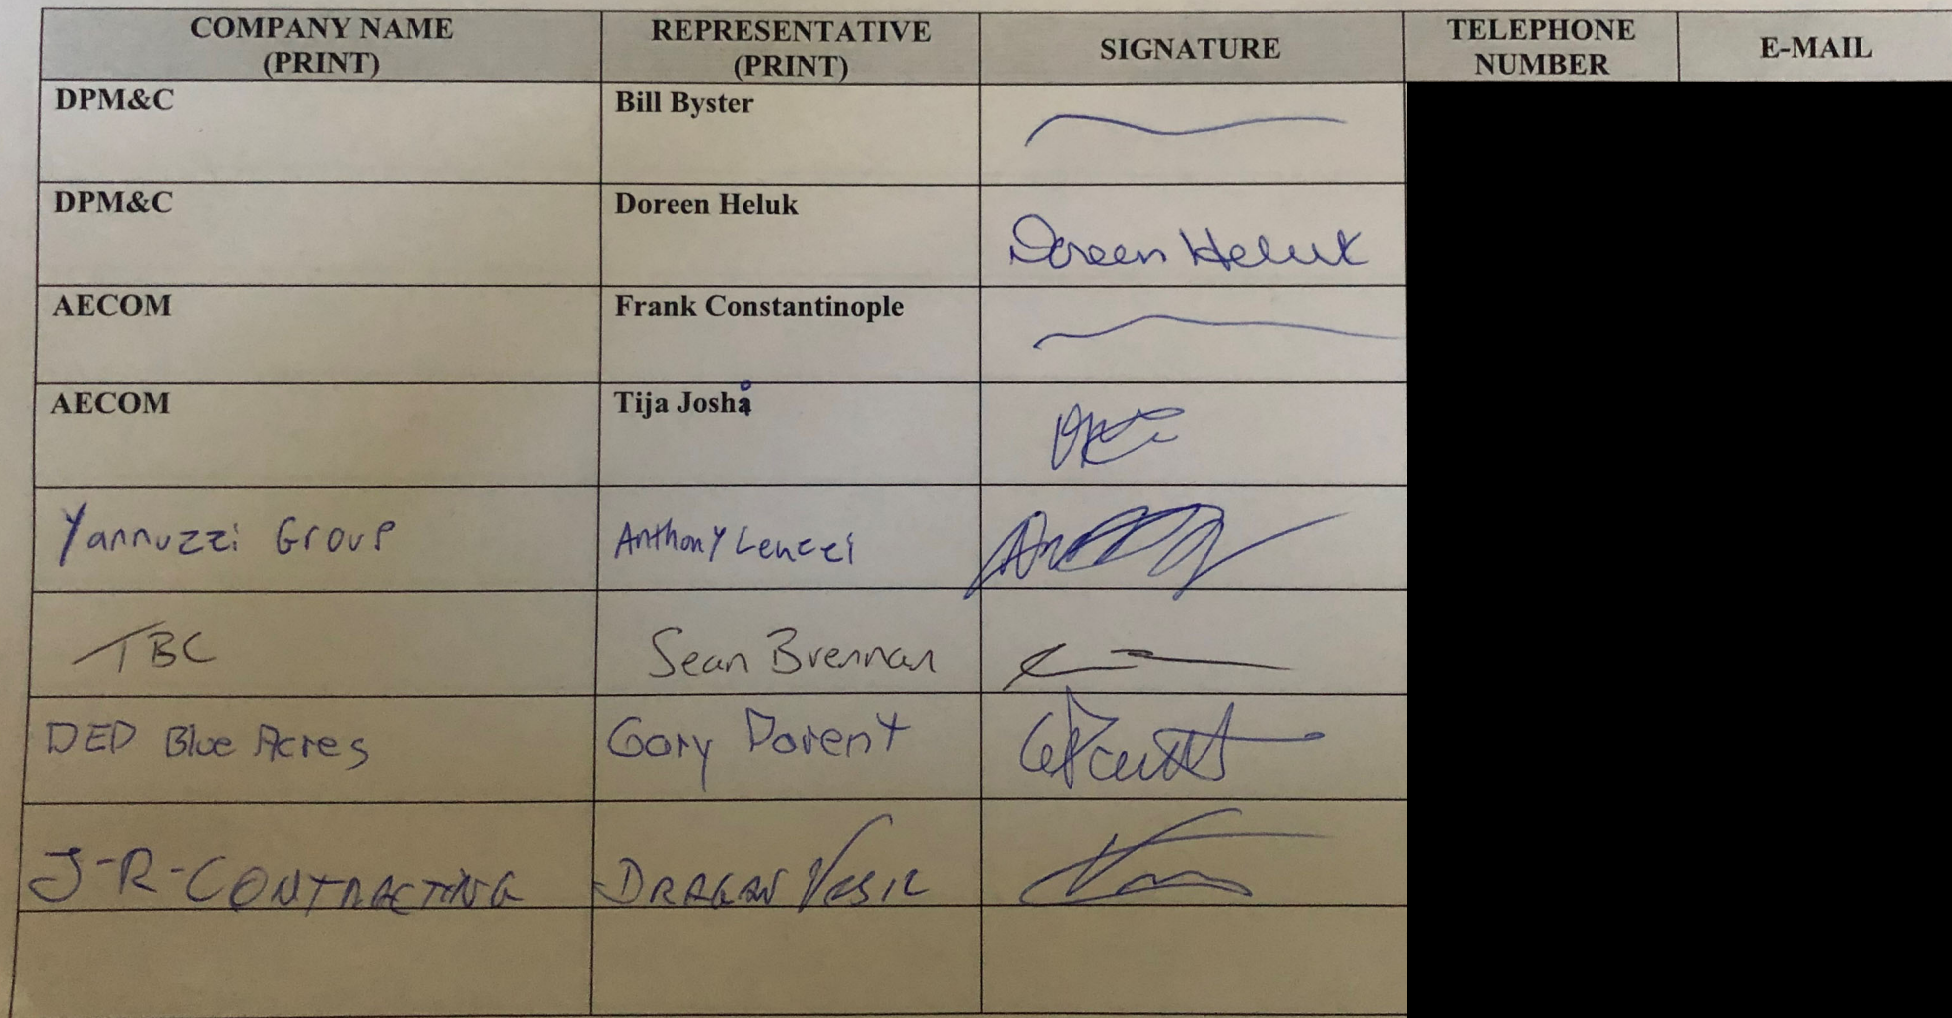 COMPANY NAME REPRESENTATIVE SIGNATURE TELEPHONE E-MAIL
(PRINT) (PRINT) NUMBER
DPM&C Bill Byster
DPM&C Doreen Heluk
Doreen Heluk
AECOM Frank Constantinople
AECOM Tija Joshi
Yannuzzi Group Anthony Lenzzi
TBC Sean Brennan
DEP Blue Acres Gary Parent
J-R-CONTRACTING DRAGAN VESIC